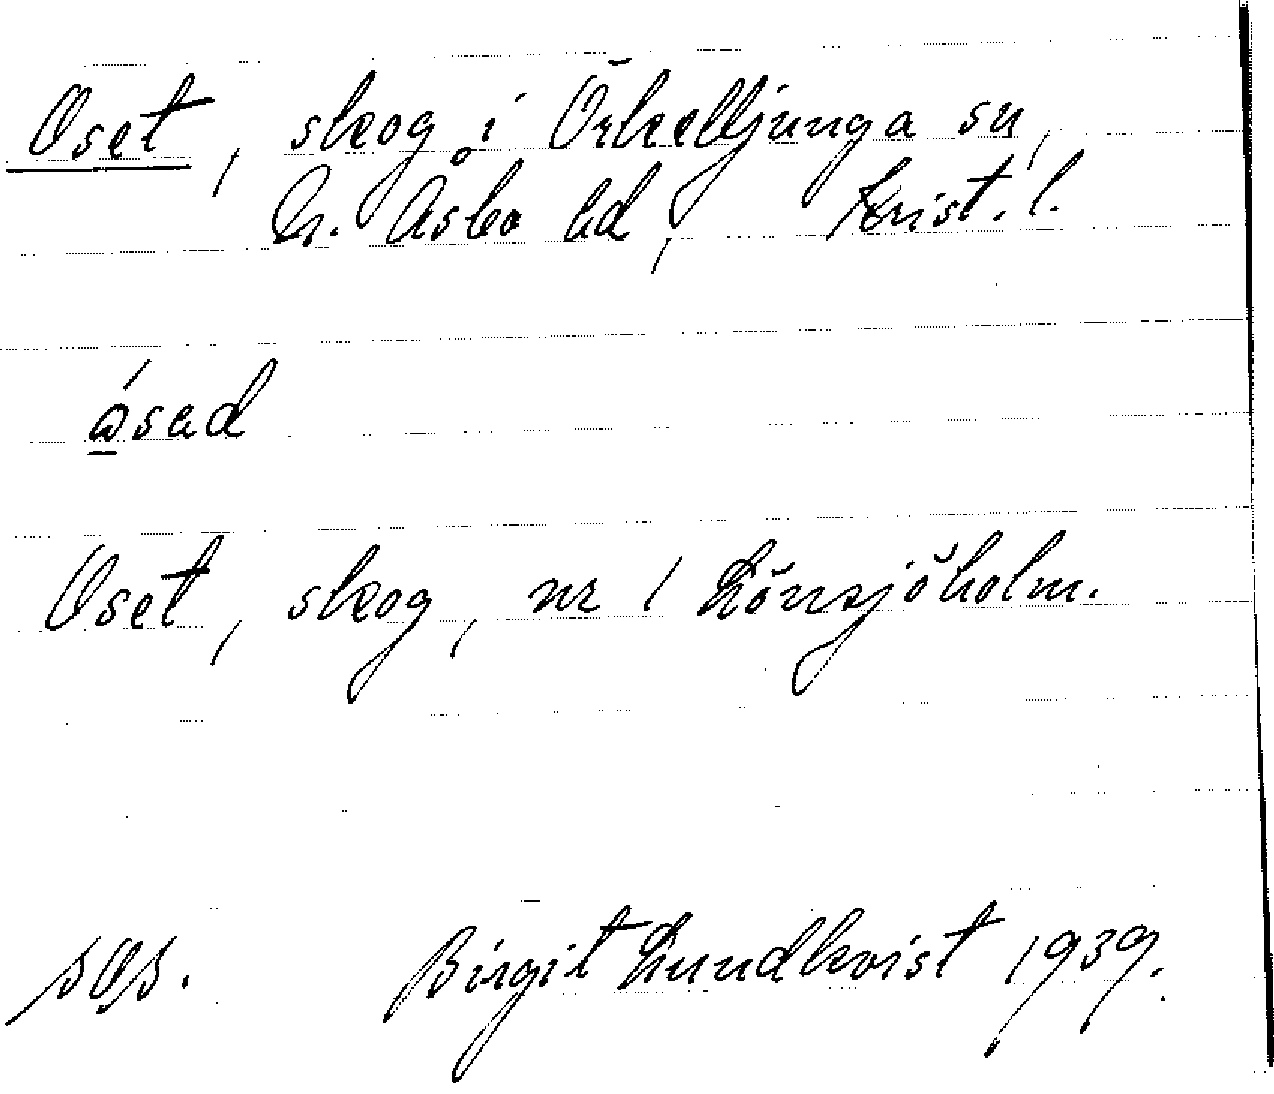 Oset, skog i Örkelljunga sn,
N. Åsbo hd, Krist. l.
ǻsad
Oset, skog, nr 1 Lönsjöholm.
sOs. Birgit Lundkvist 1939.